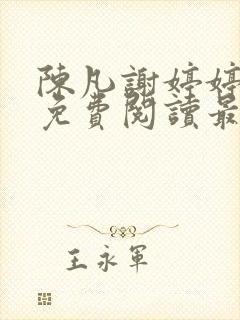 陳凡謝婷婷
免費閱讀最
王永軍